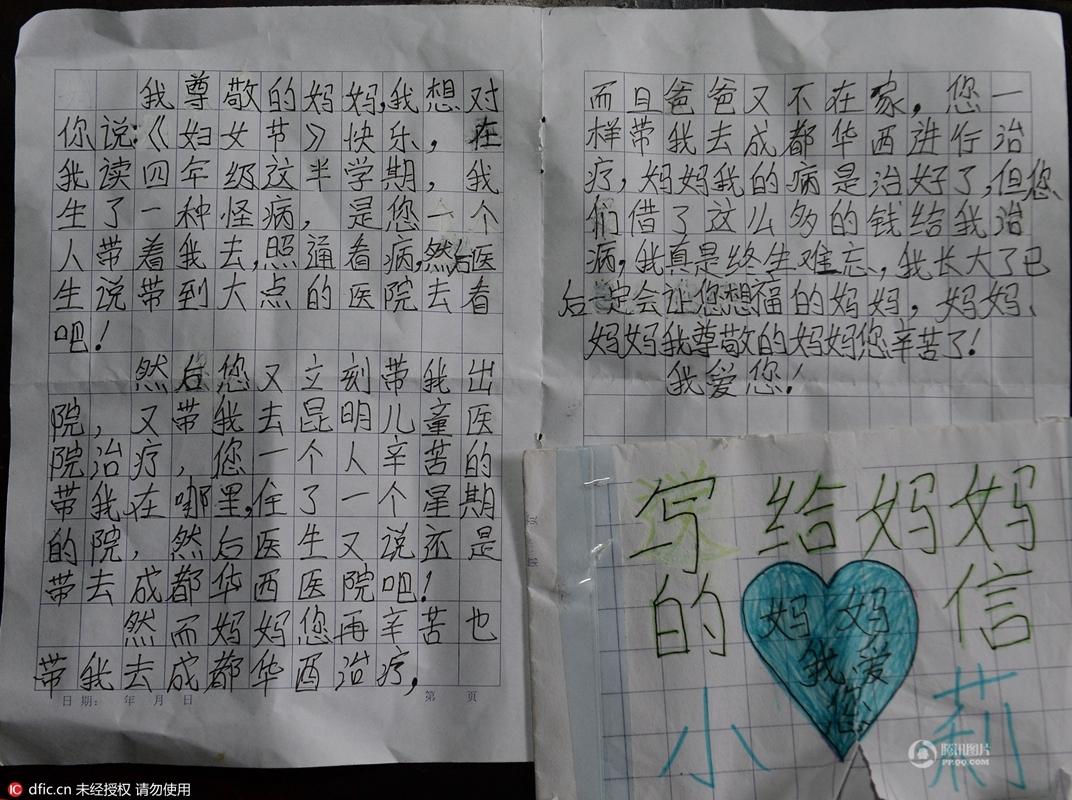 我尊敬的妈妈,我想对
你说:《妇女节》快乐，在
我读四年级这半学期，我
生了一种怪病，是您一个
人带着我去,照通看病,然后医
生说带到大点的医院去看
吧！
然后您又立刻带我出
院，又带我去昆明儿童医
院治疗，您一个人辛苦的
带我在哪里,住了一个星期
的院，然后医生又说还是
带去成都华西医院吧！
然而妈妈您再辛苦也
带我去成都华西治疗，
日期： 年 月 日
第 页
而且爸爸又不在家，您一
样带我去成都华西进行治
疗，妈妈我的病是治好了,但您
们借了这么多的钱给我治
病，我真是终生难忘、，我长大了已
后一定会让您想福的妈妈，妈妈、
妈妈我尊敬的妈妈您辛苦了！
我爱您！
写给妈妈
的信
妈妈
我爱
您
小莉
腾讯图片
PP.QQ.COM
IC dfic.cn 未经授权 请勿使用